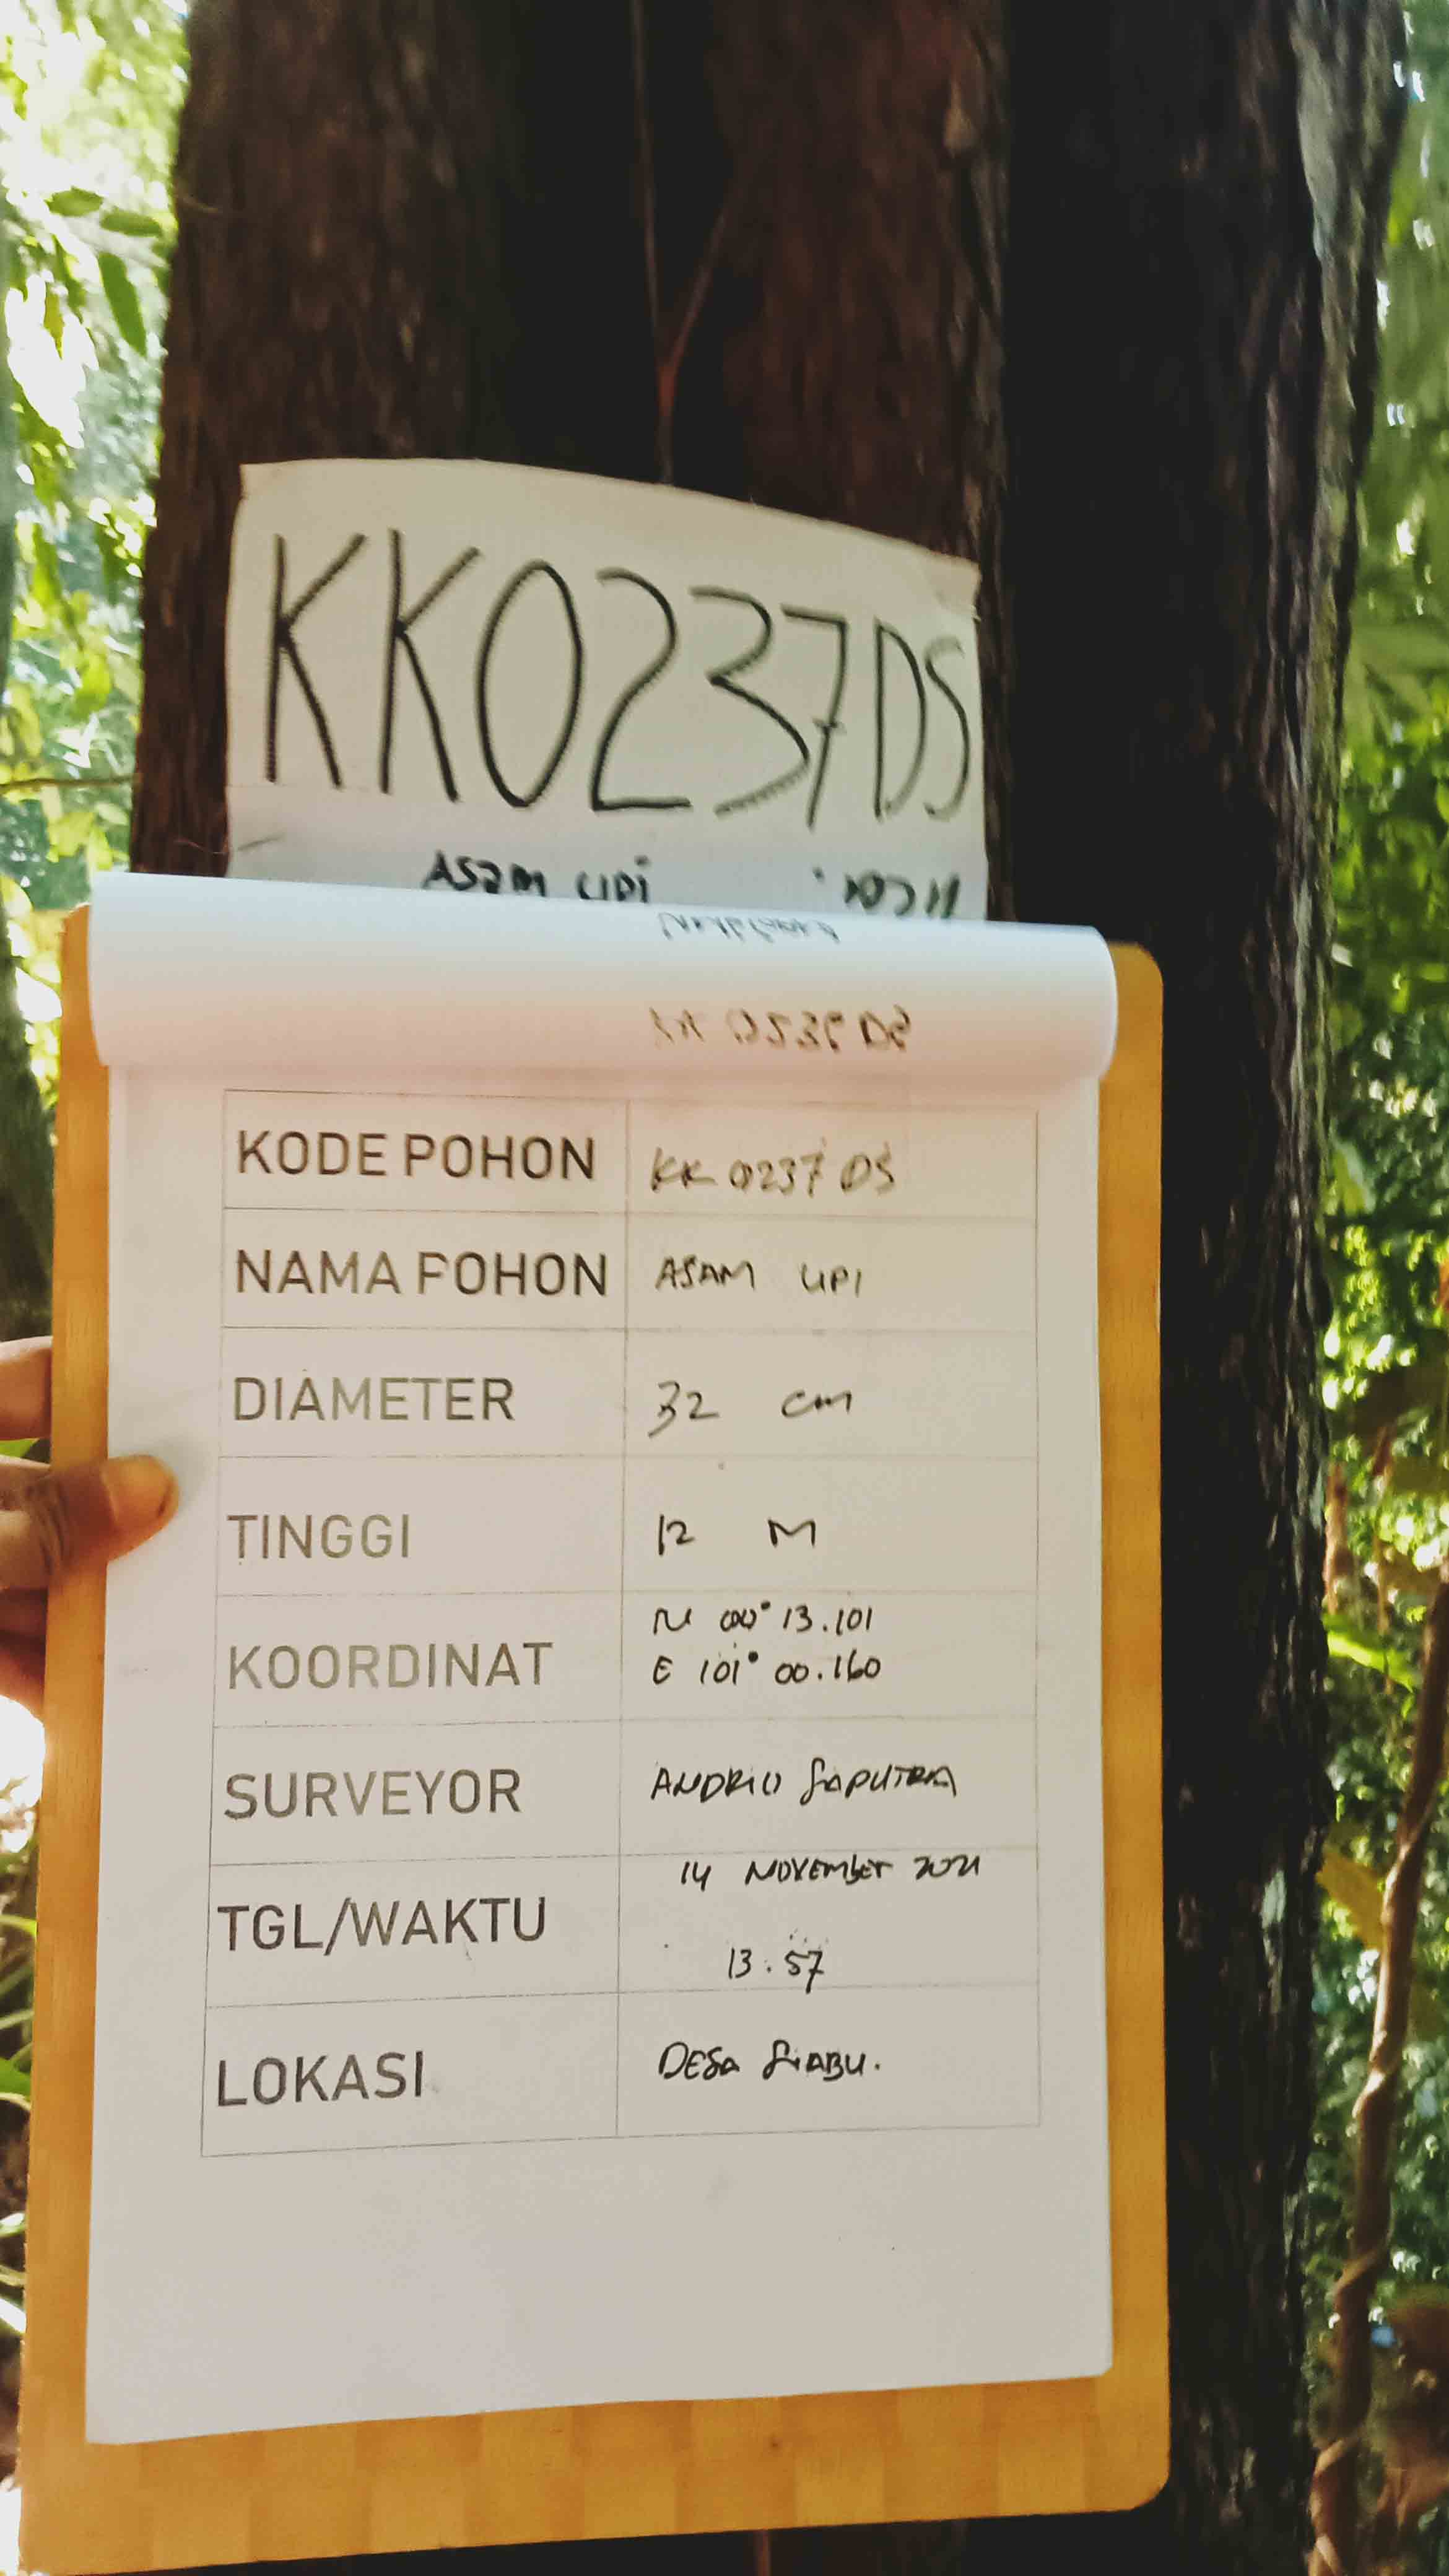 KK0237DS
ASam UPi
KODE POHON KK 0237 DS
NAMA POHON ASAM UPI
DIAMETER 32 cm
TINGGI 12 M
KOORDINAT N 00° 13.101
E 101° 00.160
SURVEYOR ANDRIU SAPUTRA
TGL/WAKTU 14 NOVEMBER 2021
13.57
LOKASI DESA SIABU.